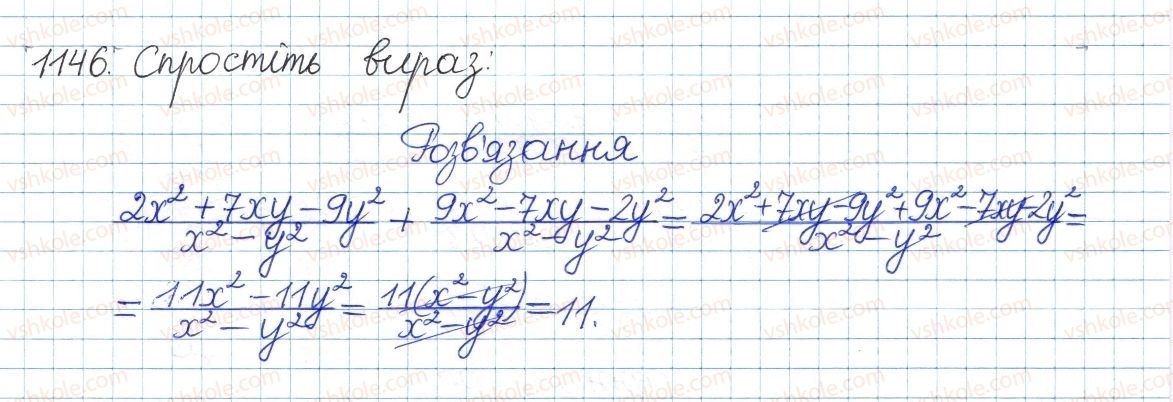 1146. Спростіть вираз:
Розв'язання
(2x² + 7xy - 9y²)/(x² - y²) + (9x² - 7xy - 2y²)/(x² - y²) = (2x² + 7xy - 9y² + 9x² - 7xy - 2y²)/(x² - y²) =
= (11x² - 11y²)/(x² - y²) = (11(x² - y²))/(x² - y²) = 11.
vshkole.com